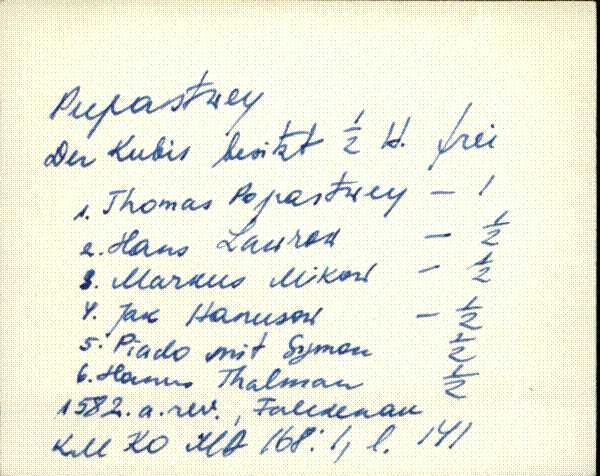 Pupastwey
Der Kubis besitzt 1/2 H. frei
1. Thomas Popastwey – 1
2. Hans Laurow – 1/2
3. Markus Mikow – 1/2
4. Jak Hanusow – 1/2
5. Piado mit Symon 1/2
6. Hanus Thalman 1/2
1582. a. rev., Falckenau
KM KO 168: 1, l. 141